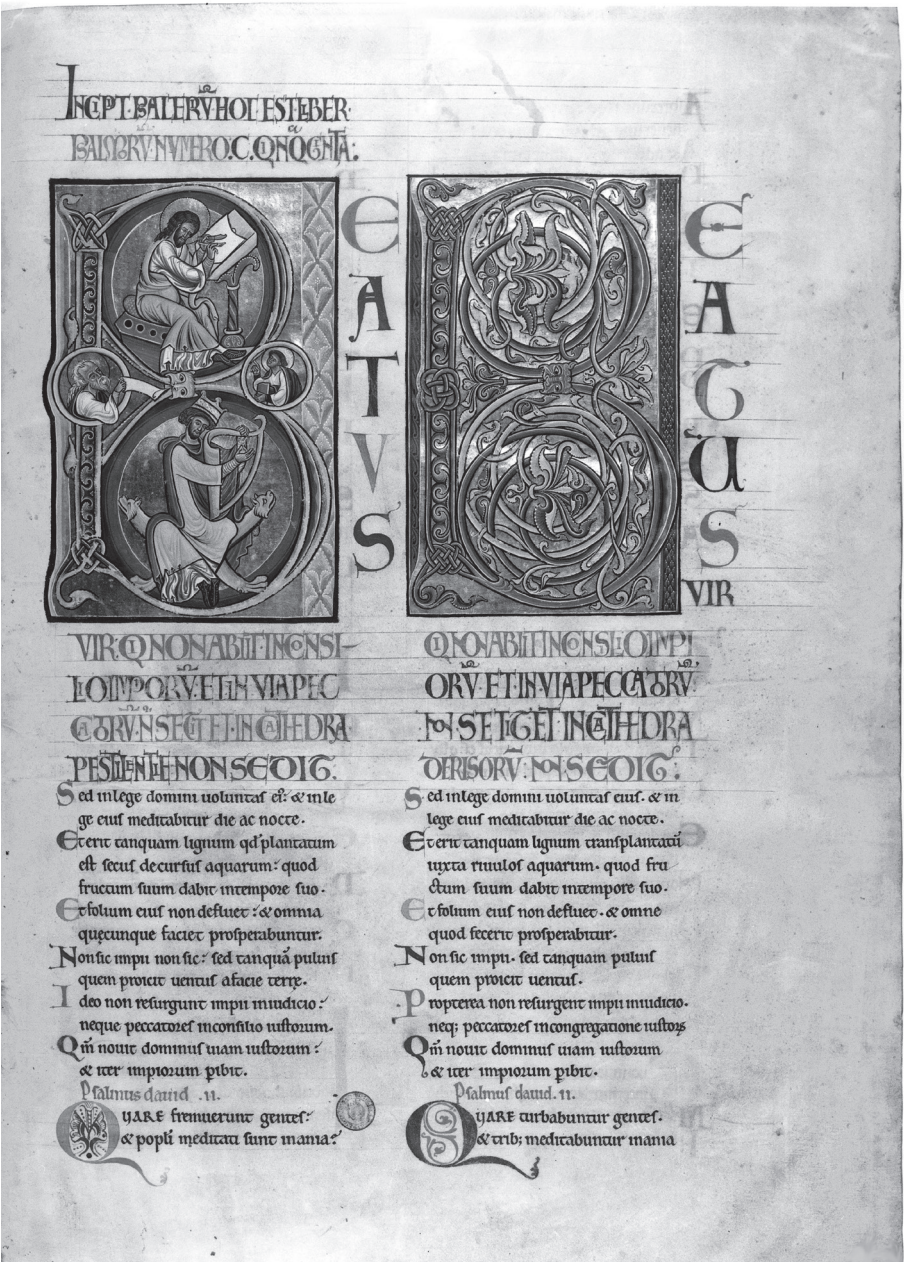 INCIPT PSALTERIV HOC EST LIBER
PSALMORV NVMERO C QINQGINTA:
BEATVS
VIR QI NON ABIIT IN CONSI-
LIO IMPIORV ET IN VIA PEC
CATORV N STETIT ET IN CATHEDRA
PESTILENTIE NON SEDIT.
Sed in lege domini uoluntas ei': & in le
ge eius meditabitur die ac nocte.
Et erit tanquam lignum qd' plantatum
est secus decursus aquarum: quod
fructum suum dabit in tempore suo.
Et folium eius non defluet: & omnia
quęcunque faciet prosperabuntur.
Non sic impii non sic: sed tanquā puluis
quem proicit uentus a facie terrę.
Ideo non resurgunt impii in iudicio:
neque peccatores in consilio iustorum.
Qm̄ nouit dominus uiam iustorum:
& iter impiorum pibit.
Psalmus dauid .11.
QUARE fremuerunt gentes:
& popli meditati sunt inania:
BEATUS
VIR
QI NON ABIIT IN CONSILIO IMPI
ORV ET IN VIA PECCATORV
NON STETIT ET IN CATHEDRA
DERISORV NON SEDIT:
Sed in lege domini uoluntas eius. & in
lege eius meditabitur die ac nocte.
Et erit tanquam lignum transplantatū
iuxta riuulos aquarum. quod fru
ctum suum dabit in tempore suo.
Et folium eius non defluet. & omne
quod fecerit prosperabitur.
Non sic impii. sed tanquam puluis
quem proicit uentus.
Propterea non resurgent impii in iudicio.
neq; peccatores in congregatione iustoꝝ
Qm̄ nouit dominus uiam iustorum
& iter impiorum pibit.
Psalmus dauid .11.
QUARE turbabuntur gentes.
& trib; meditabuntur inania